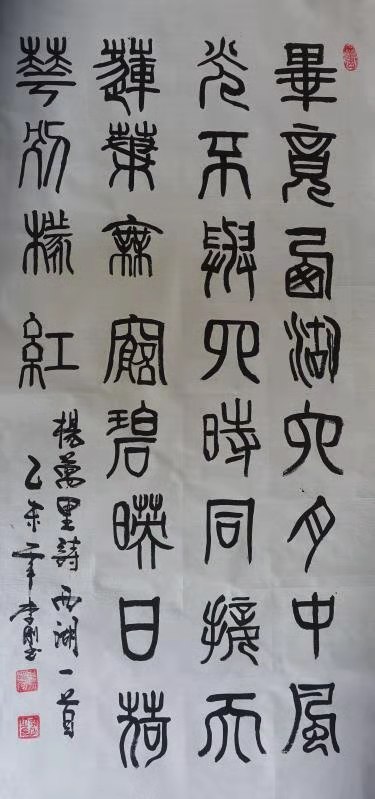 畢竟西湖六月中風
光不與四時同接天
蓮葉無窮碧暎日荷
華別樣紅
楊萬里詩西湖一首
乙未年李刚书